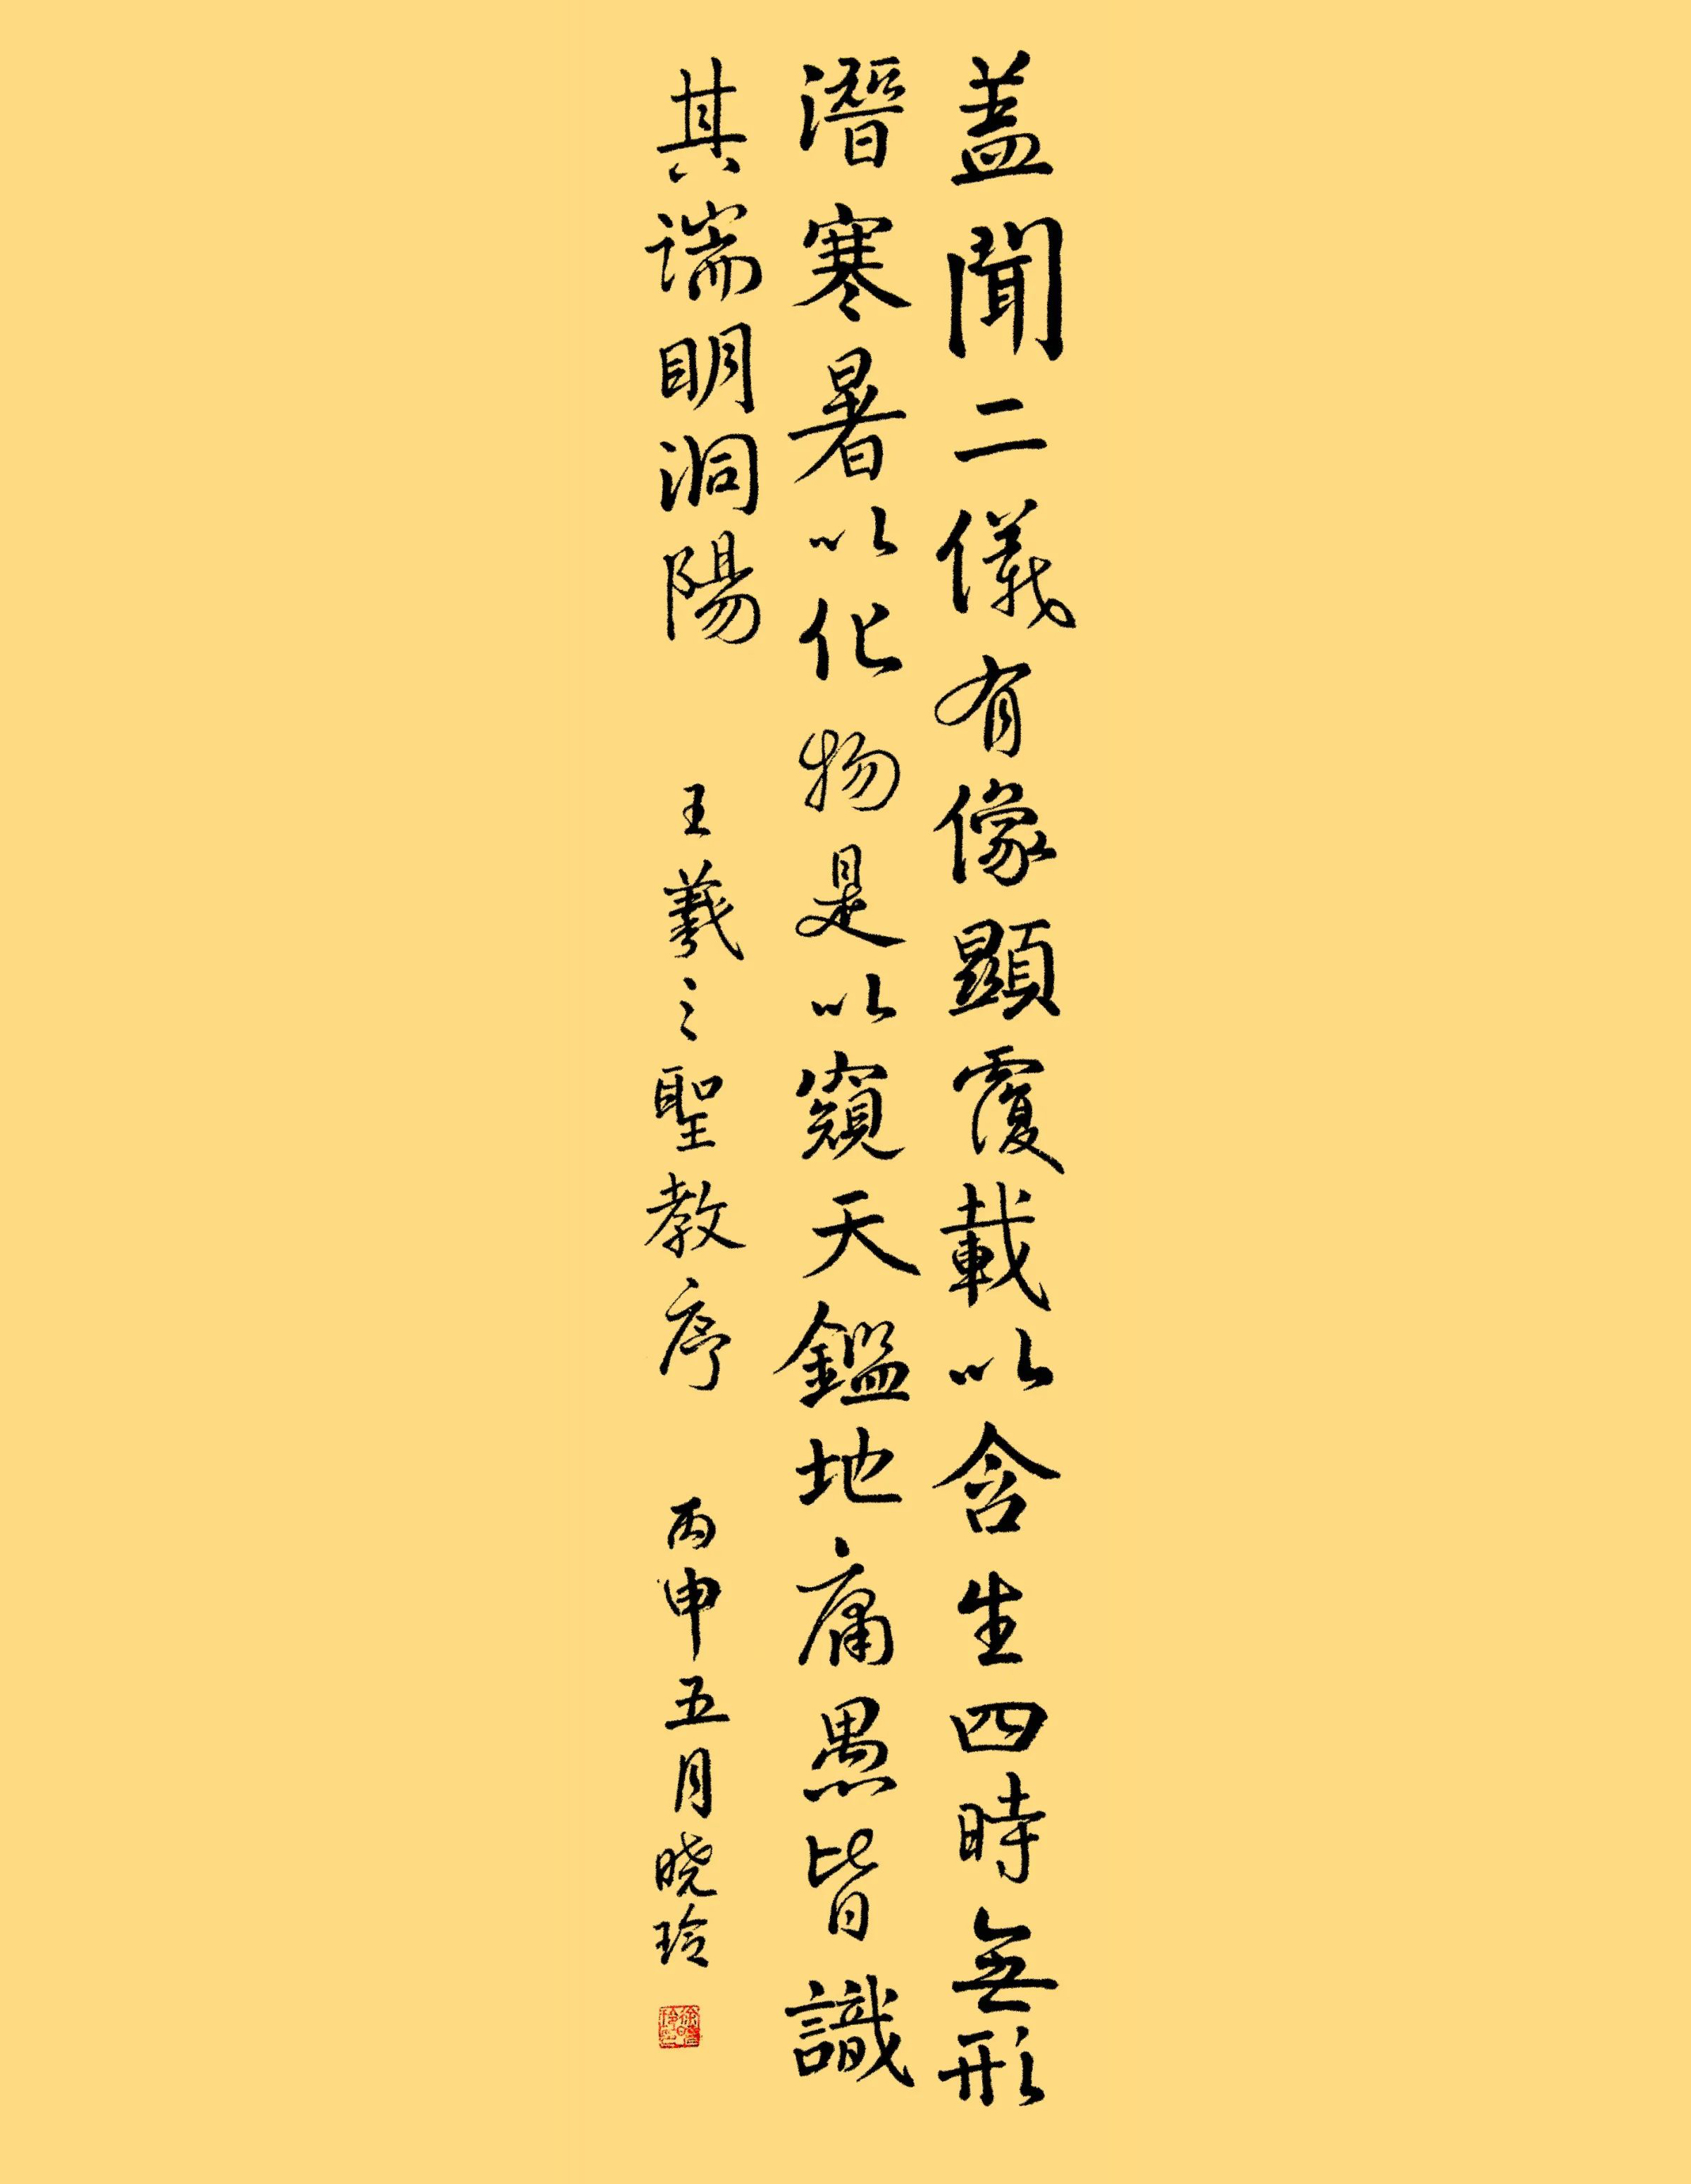 蓋聞二儀有像顯覆載以含生四時無形
潛寒暑以化物是以窺天鑑地庸愚皆識
其端明洞陽
王羲之聖教序
丙申五月曉玲